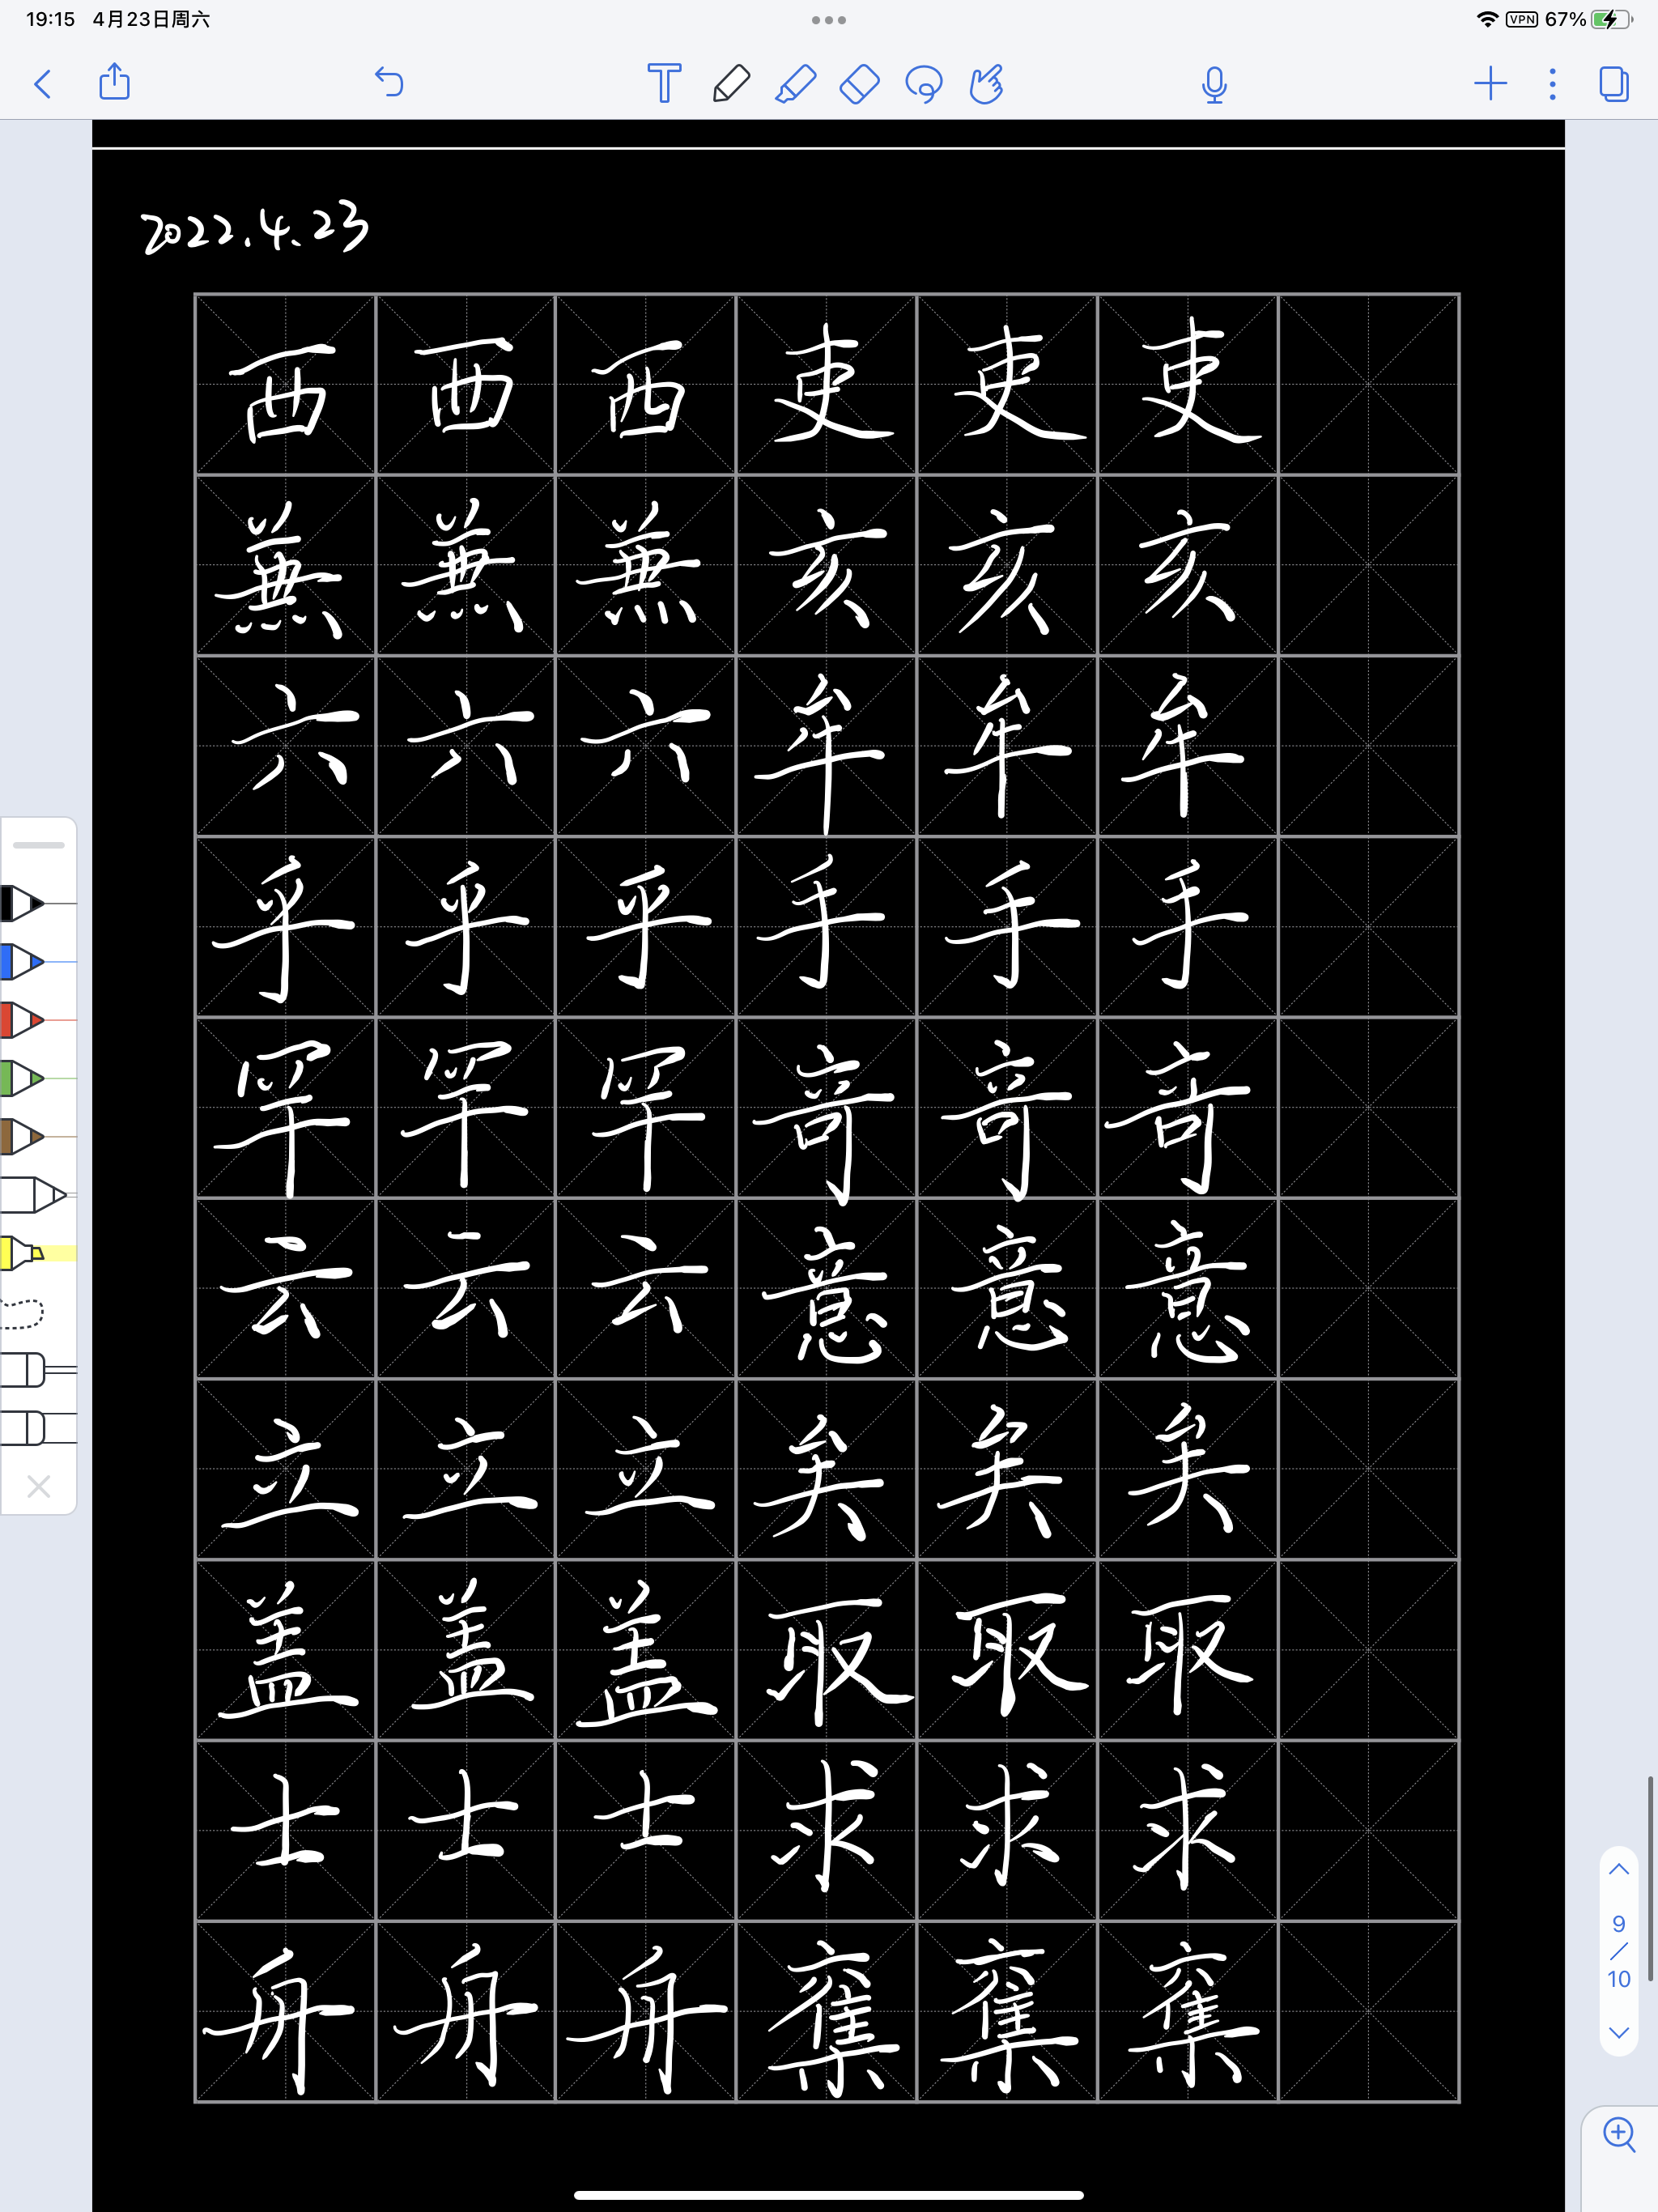 19:15 4月23日周六
VPN 67%
2022.4.23
西西西吏吏吏
無無無亥亥亥
六六六牟牟牟
乎乎乎手手手
罕罕罕奇奇奇
云云云意意意
立立立矣矣矣
盖盖盖取取取
士士士求求求
舟舟舟
9
10